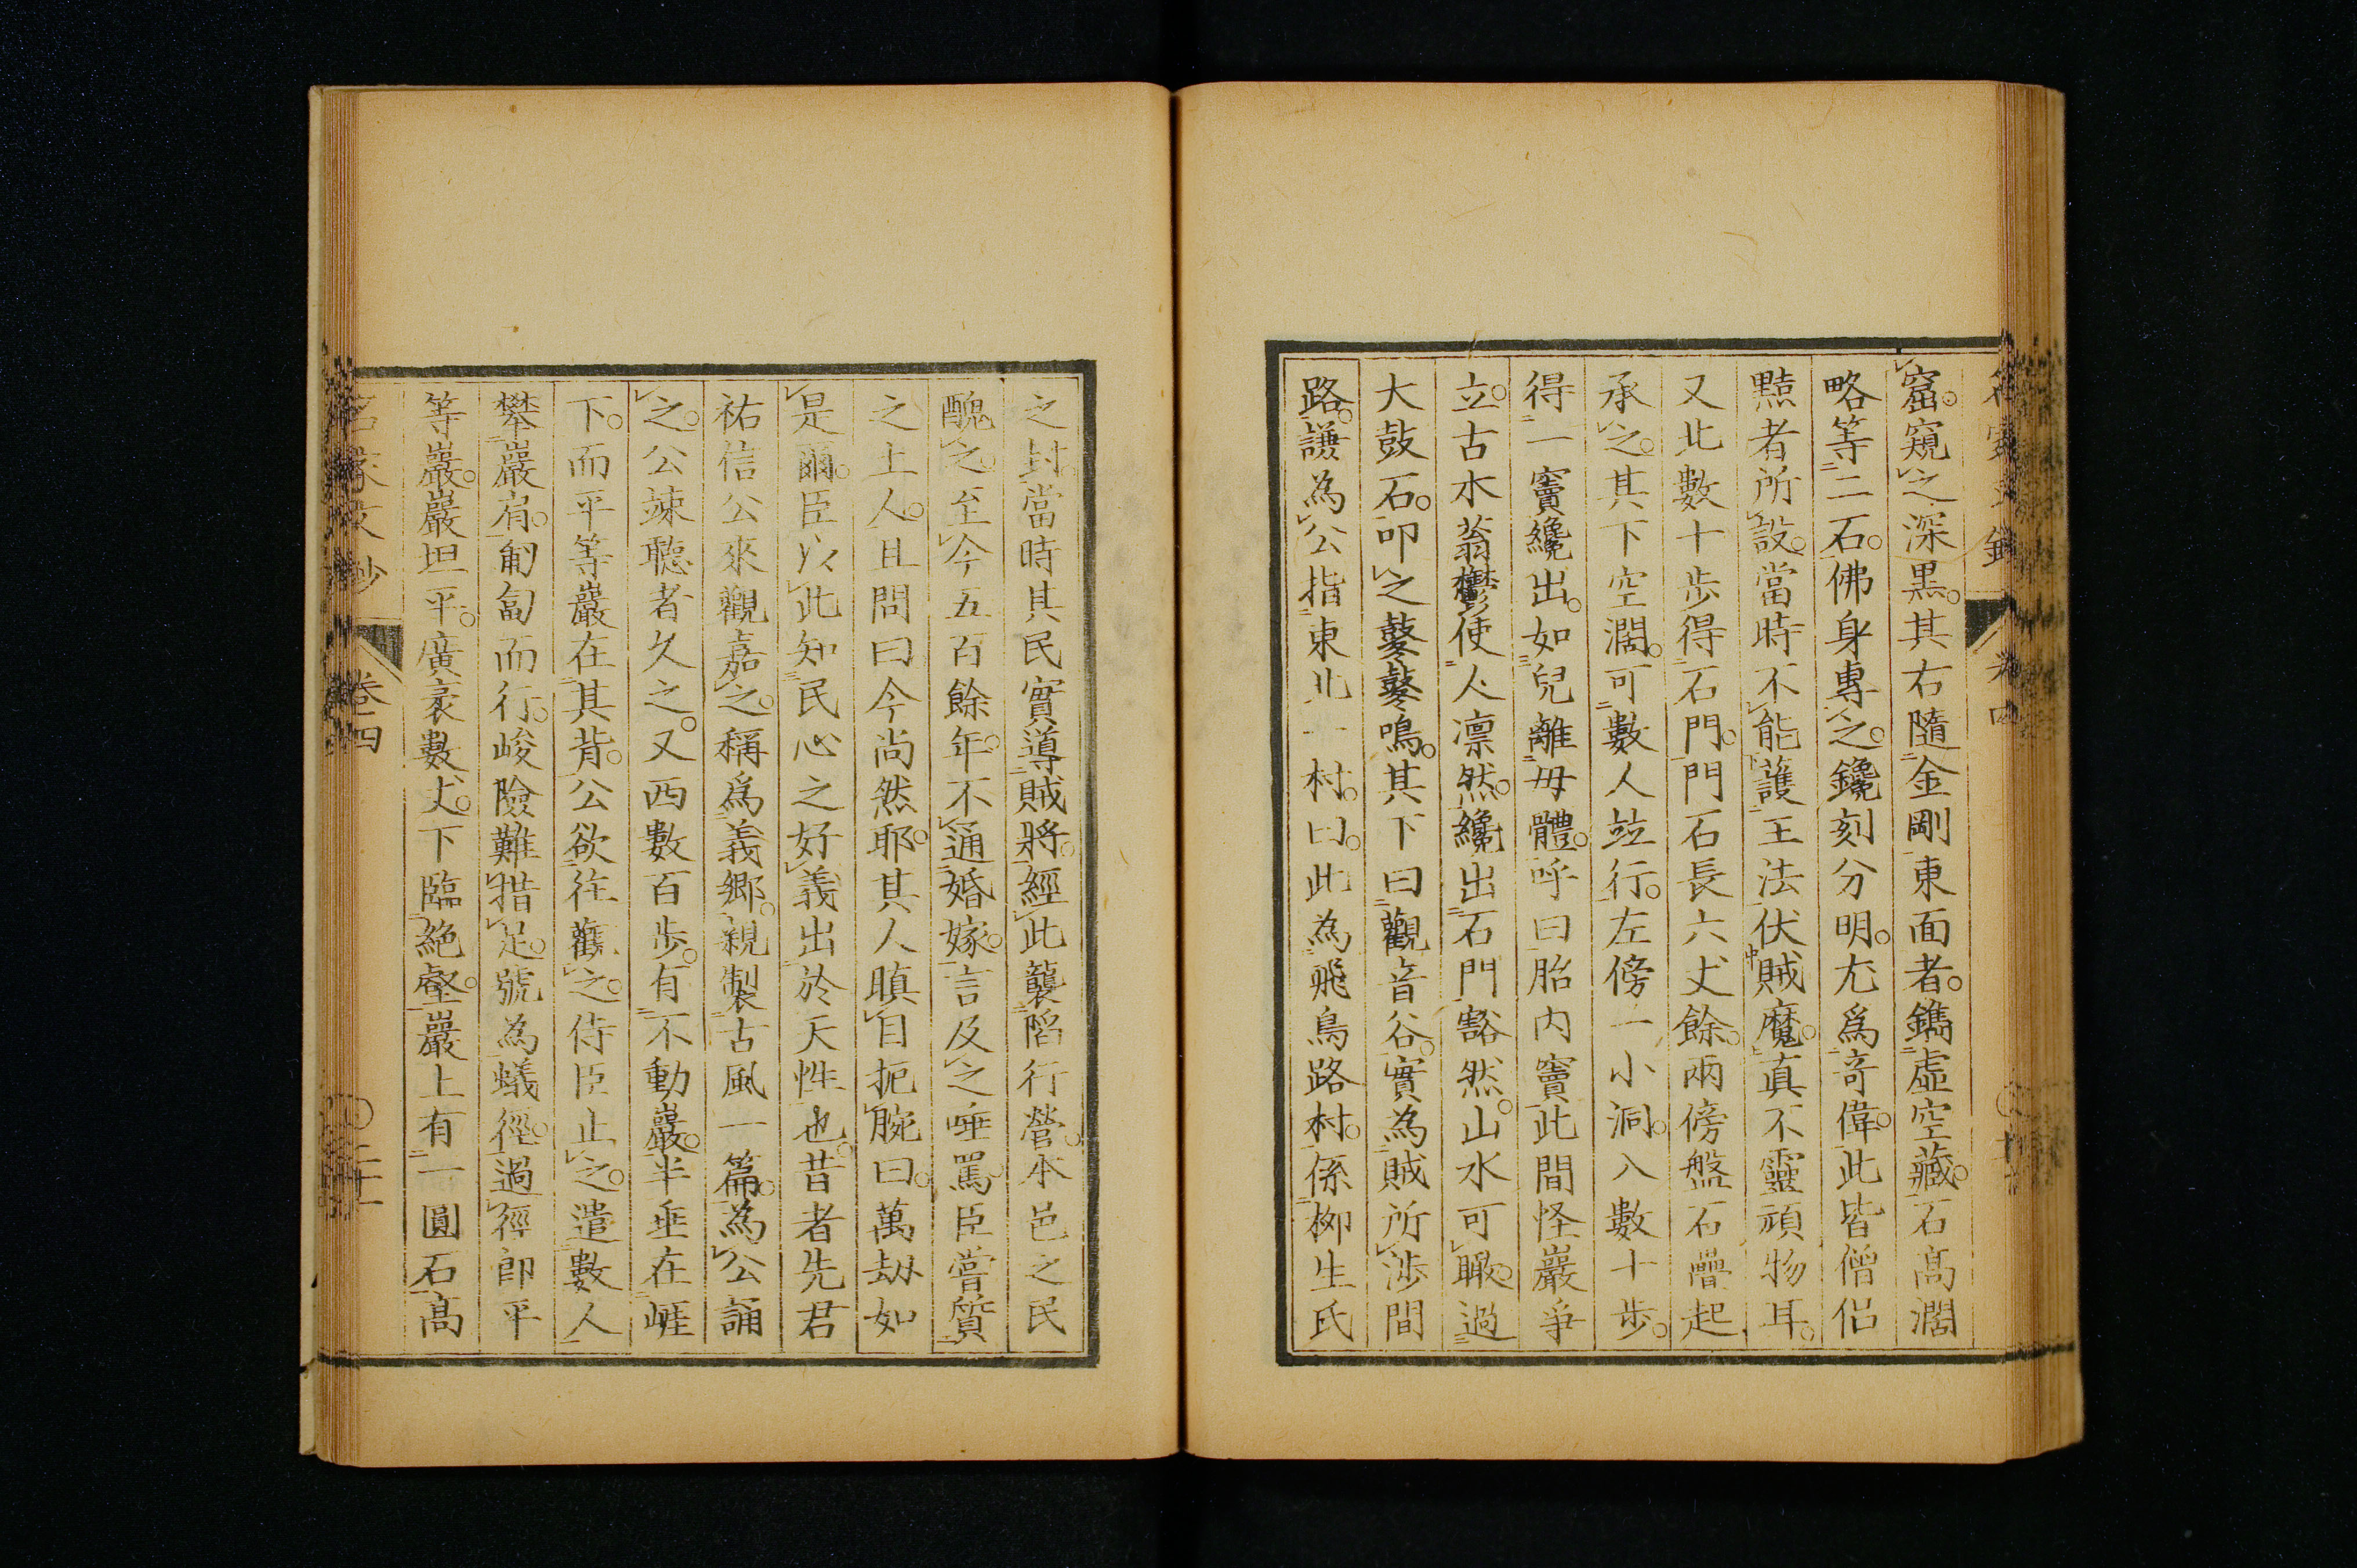 窟。窺之深黒。其右隨金剛東面者。鐫虛空藏。石高濶
略等二石。佛身專之。鑱刻分明。尤爲竒偉。此皆僧侶
黠者所設。當時不能護王法伏賊魔。眞不靈頑物耳。
又北數十歩得石門。門石長六丈餘。兩傍盤石疊起
承之。其下空濶。可數人竝行。左傍一小洞。入數十歩。
得一竇纔出。如兒離母體。呼曰胎内竇此間怪巖爭
立。古木蓊鬱使人凛然。纔出石門豁然。山水可瞰。過
大鼓石。叩之鼕鼕鳴。其下曰觀音谷。實為賊所渉間
路。謙為公指東北一村。曰。此為飛鳥路村。係栁生氏
之封。當時其民實導賊將。經此襲陷行營。本邑之民
醜之。至今五百餘年。不通婚嫁。言及之唾罵。臣嘗質
之土人。且問曰今尚然耶。其人瞋目扼腕曰。萬劫如
是爾。臣以此知民心之好義出於天性也。昔者先君
祐信公來觀嘉之。稱爲義郷。親製古風一篇。為公誦
之。公竦聽者久之。又西數百歩。有不動巖。半垂在崕
下。而平等巖在其背。公欲往觀之。侍臣止之。遣數人
攀巖肩。匍匐而行。峻險難措足。號為蟻徑。過徑即平
等巖。巖坦平。廣袤數丈。下臨絶壑。巖上有一圓石高
名家文抄
卷四
二十一